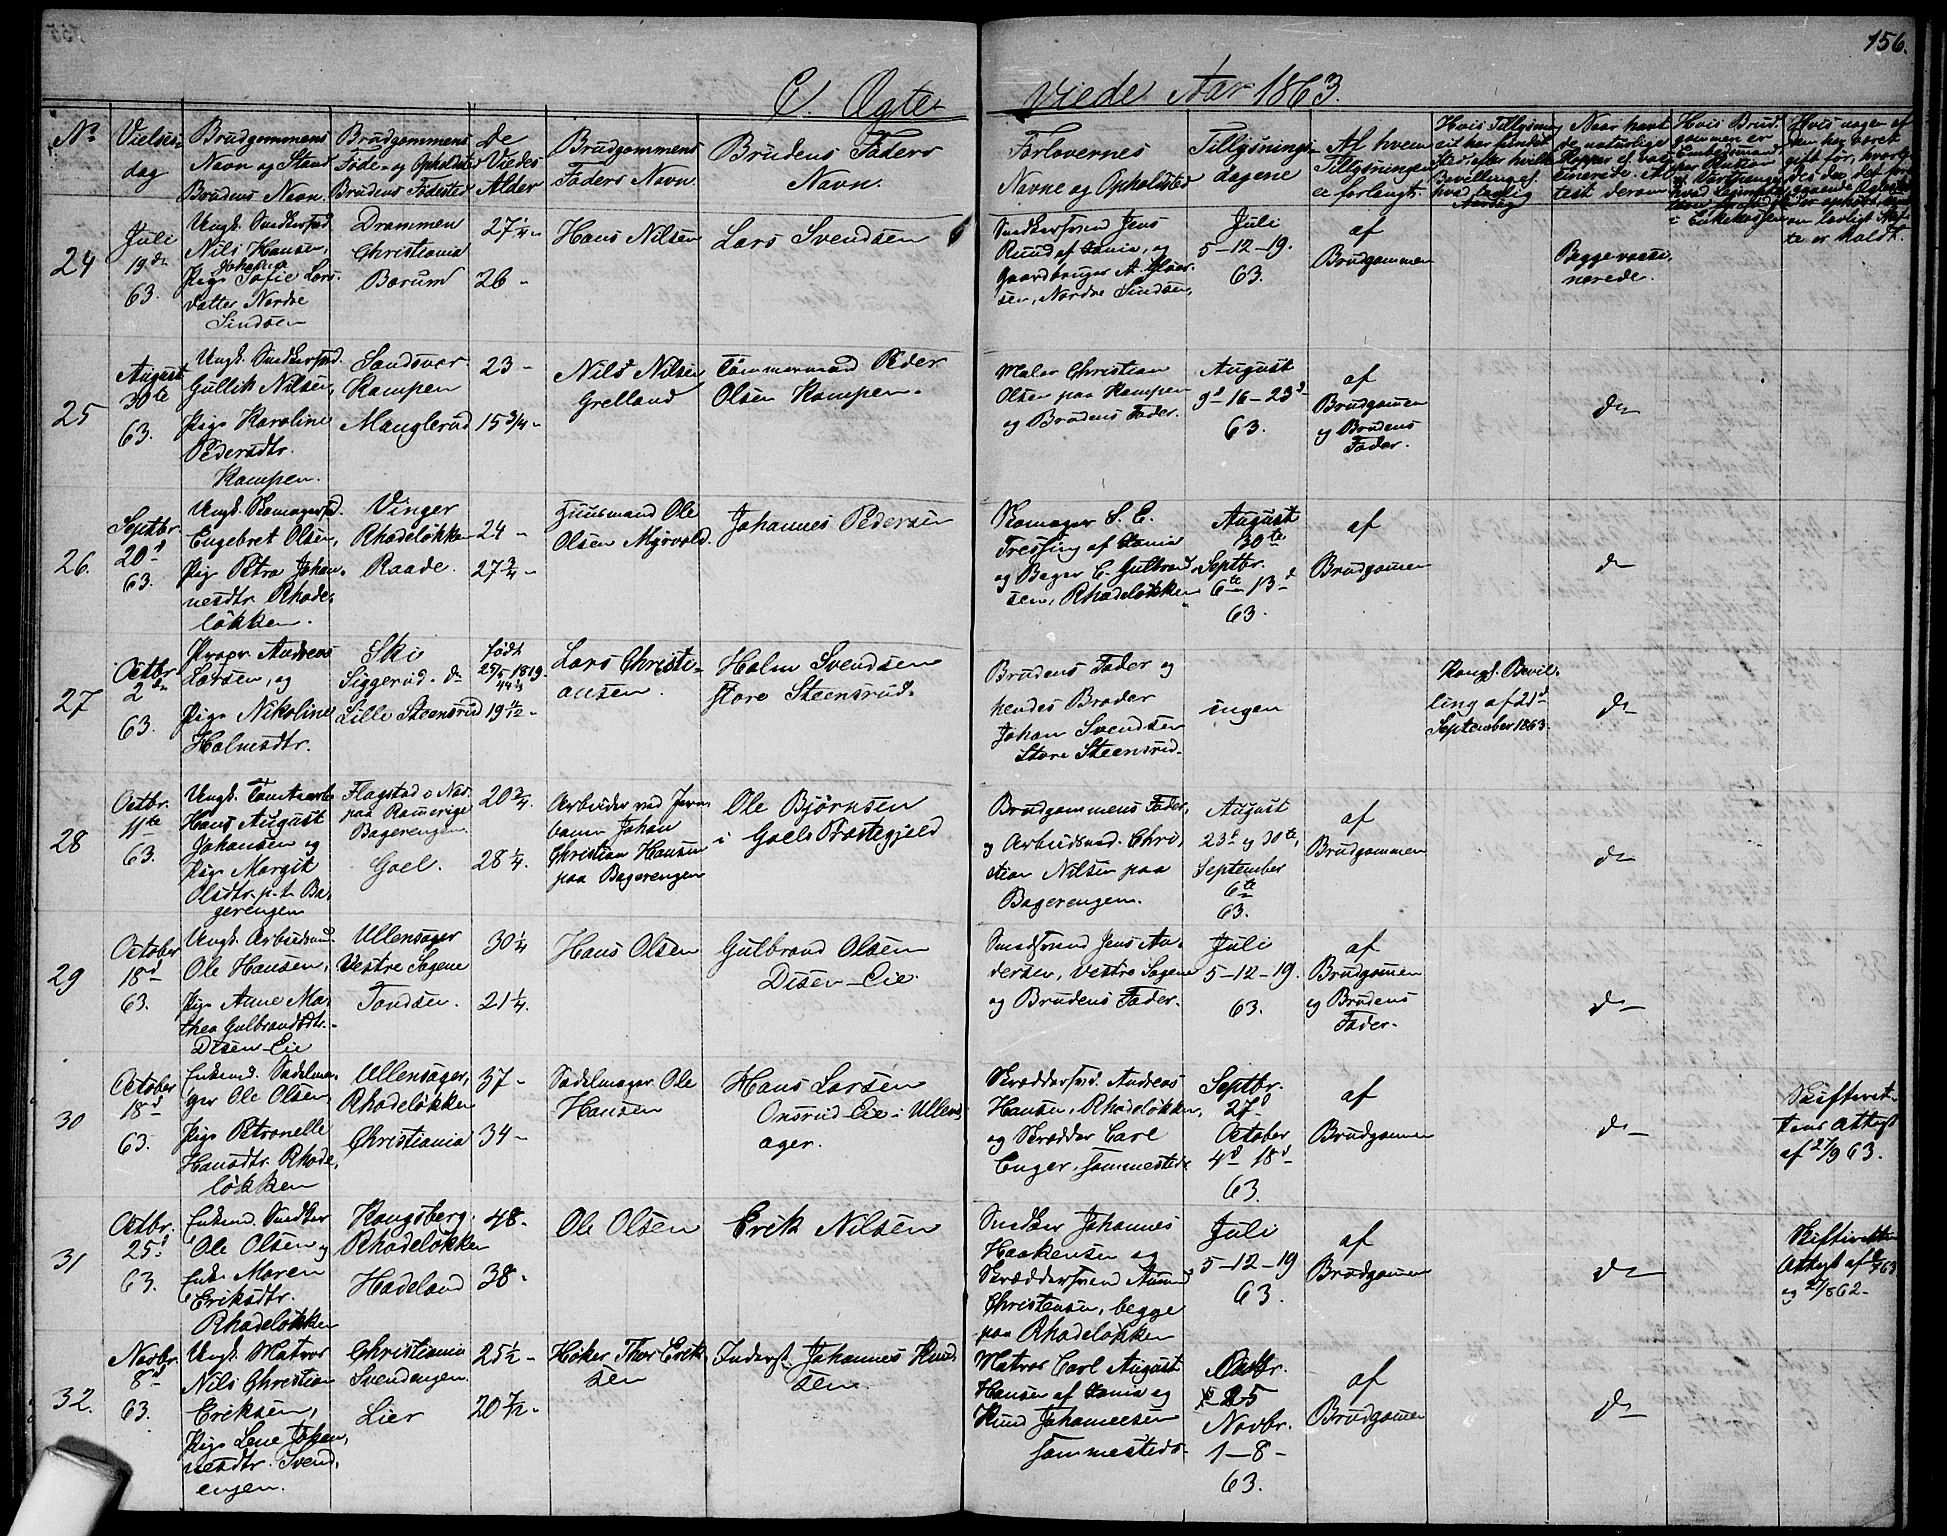 156.
C. Ægte-
viede Aar 1863.
No
Vielses-
dag
Brudgommens
Navn og Stand
Brudens Navn.
Brudgommens
Føde- og Opholdsted
Brudens Fødested
De
Viedes
Alder
Brudgommens
Faders Navn
Brudens Faders
Navn.
Forlovernes
Navne og Opholdsted
Tillysnings-
dagene
Af hvem
Tillysningen
er forlangt.
Hvis Tillysning
ei har fundet
Sted efter hvilken
Bevilling ef.
hvad lovlig
Naar havt
de naturlige
Kopper el. vac-
cinerede. At-
test derom
Hvis Brud-
gommen er
i Enkekassen
Hvis nogen af
dem har været
gift før, hvorle-
des da det fore-
gaaende Ægteskab
er opløst,
om lovligt Skif-
te er holdt.
24
Juli
19de
63.
Ungk. Snedkersvd
Nils Hansen,
Johanna
Pige Sofie Lars-
datter Nordre
Sindsen
Drammen
Christiania
Bærum
27 1/4 -
26 -
Hans Nilsen
Lars Svendsen
Snedkersvend Jens
Ruud af Xania, og
Gaardbruger A.
sen, Nordre Sindsen,
Juli
5-12-19.
63.
af
Brudgommen
Begge vacci-
nerede.
25
August
30te
63.
Ungk. Snedkersvd.
Gullik Nilsen,
Pige Karoline
Pedersdtr.
Kampen.
Sandsvær
Kampen
Manglerud
23 -
15 3/4 -
Nils Nilsen
Grelland
Tømmermand Peder
Olsen Kampen.
Maler Christian
Olsen paa Kampen
og Brudens Fader.
August
9d - 16 - 23d
63.
af
Brudgommen
og Brudens
Fader.
do
26.
Septbr.
20d
63.
Ungk. Skomagersvd.
Engebret Olsen,
Pige Petra Johan-
nesdtr. Rhode-
løkken.
Vinger
Rhodeløkken
Raade.
24 -
27 3/4 -
Huusmand Ole
Olsen Myrvold.
Johannes Pedersen
Skomager S. C.
Tressing af Xania
og Bager C. Gulbrand-
sen, Rhodeløkken
August
30te
Septbr.
6te 13d
63.
af
Brudgommen
do
27
Octbr.
2den
63.
Propr. Andreas
Larsen, og
Pige Nikoline
Holmsdtr.
Ski
Siggerud. do
Lille Steensrud
født
25/5 1819
44 1/3
19 4/12 -
Lars Christi-
ansen.
Holm Svendsen
store Steensrud.
Brudens Fader og
hendes Broder
Johan Svendsen
Store Steensrud.
ingen
Kongl. Bevil-
ling af 21d
September 1863.
do
28
Octbr.
11te
63.
Ungk. Tomtearb.
Hans August
Johansen og
Pige Margit
Olsdtr. p. t. Ba-
gerengen
Flagstad o Næs
paa Romerige
Bagerengen
Goel.
20 3/4.
28 1/4.
Arbeider ved Jern-
banen Johan
Christian Hansen
paa Bagerengen
Ole Bjørnsen
i Goels Præstegjeld
Brudgommens Fader,
og Arbeidsmd. Chri-
stian Nilsen paa
Bagerengen.
August
23d og 30te,
September
6te
63.
af
Brudgommen
do
29
October
18d
63.
Ungk. Arbeidsmd
Ole Hansen,
Pige Anne Mar-
thea Gulbrandsdtr.
Disen-Eie
Ullensager
Vestre Sogene
Tondsen.
30 1/4
21 1/4.
Hans Olsen
Gulbrand Olsen
Disen-Eie.
Smedsvend Jens An-
dersen, Vestre Sagene
og Brudens Fader.
Juli
5-12-19.
63.
af
Brudgommen
og Brudens
Fader.
do
30
October
18d
63.
Enkemd. Sadelma-
ger Ole Olsen,
Pige Petronelle
Hansdtr. Rhode-
løkken
Ullensager,
Rhodeløkken
Christiania
37 -
34 -
Sadelmager Ole
Hansen
Hans Larsen
Onsrud Eie i Ullens-
ager.
Skræddersvd. Andreas
Hansen, Rhodeløkken,
og Skrædder Carl
Enger, sammesteds
Septbr.
27d
October
4d 18d
63.
af
Brudgommen
do
Skifteret-
tens Attest
af 21/9 63.
31
Octbr.
25d
63.
Enkemd. Snedker
Ole Olsen og
Enke Maren
Eriksdtr.
Rhodeløkken
Kongsberg.
Rhodeløkken
Hadeland
48 -
38 -
Ole Olsen
Erik Nilsen
Snedker Johannes
Haakensen og
Skræddersvend Amund
Christensen, begge
paa Rhodeløkken
Juli
5-12-19
63.
af
Brudgommen
do
Skifterettens
Attest af
og
32.
Novbr.
8d
63.
Ungk. Matros
Nils Christian
Eriksen,
Pige Lene Johan-
nesdtr. Svend-
engen.
Christiania
Svendengen.
Lier
25 1/2 -
20 7/12 -
Høker Thor Erik-
sen
Inderst. Johannes Knud-
sen.
Matros Carl August
Hansen af Xania og
Knud Johannesen
sammesteds.
Octbr.
25
Novbr.
1-8-
63.
af
Brudgommen
do